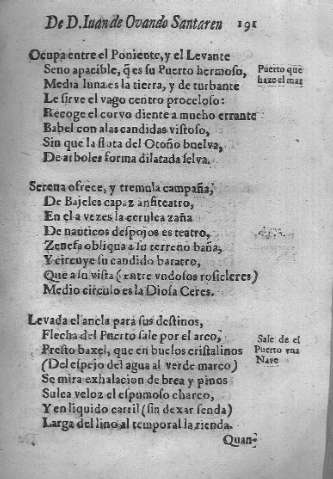 De D. Iuan de Ovando Santaren 191
Ocupa entre el Poniente, y el Levante
Seno apacible, q̃ es su Puerto hermoso,
Media luna es la tierra, y de turbante
Le sirve el vago centro proceloso:
Recoge el corvo diente a mucho errante
Babel con alas candidas vistoso,
Sin que la flota del Otoño buelva,
De arboles forma dilatada selva.
Puerto que
haze el mar
Serena ofrece, y tremula campaña,
De Bajeles capaz anfiteatro,
En el a vezes la cerulea zaña
De nauticos despojos es teatro,
Zenefa obliqua a su terreno baña,
Y circuye su candido baratro,
Que a su vista (entre undosos rosicleres)
Medio circulo es la Diosa Ceres.
Levada el ancla para sus destinos,
Flecha del Puerto sale por el arco,
Presto baxel, que en buelos cristalinos
(Del espejo del agua al verde marco)
Se mira exhalacion de brea y pinos
Sulca veloz el espumoso charco,
Y en liquido carril (sin dexar senda)
Larga del lino al temporal la rienda.
Sale de el
Puerto vna
Nave
Quan-